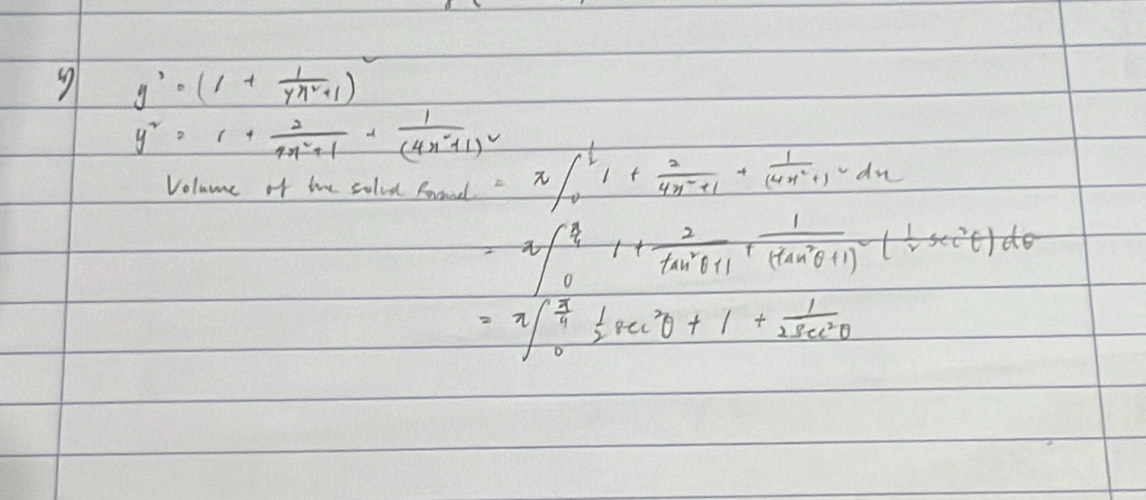 y² = (1 + 1/(4x²+1))²
y² = 1 + 2/(4x²+1) + 1/(4x²+1)²
Volume of the solid formed = π∫₀^(1/2) 1 + 2/(4x²+1) + 1/(4x²+1)² dx
= π∫₀^(π/4) 1 + 2/(tan²θ+1) + 1/(tan²θ+1)² (½ sec²θ) dθ
= π∫₀^(π/4) ½ sec²θ + 1 + 1/(2sec²θ)